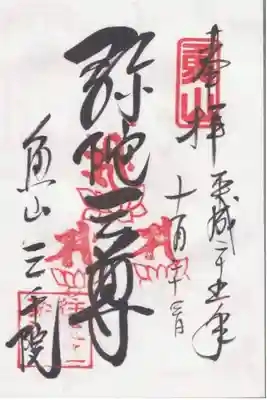 奉拝 平成二十五年
十月十三日
弥陀三尊
魚山 三千院
魚山